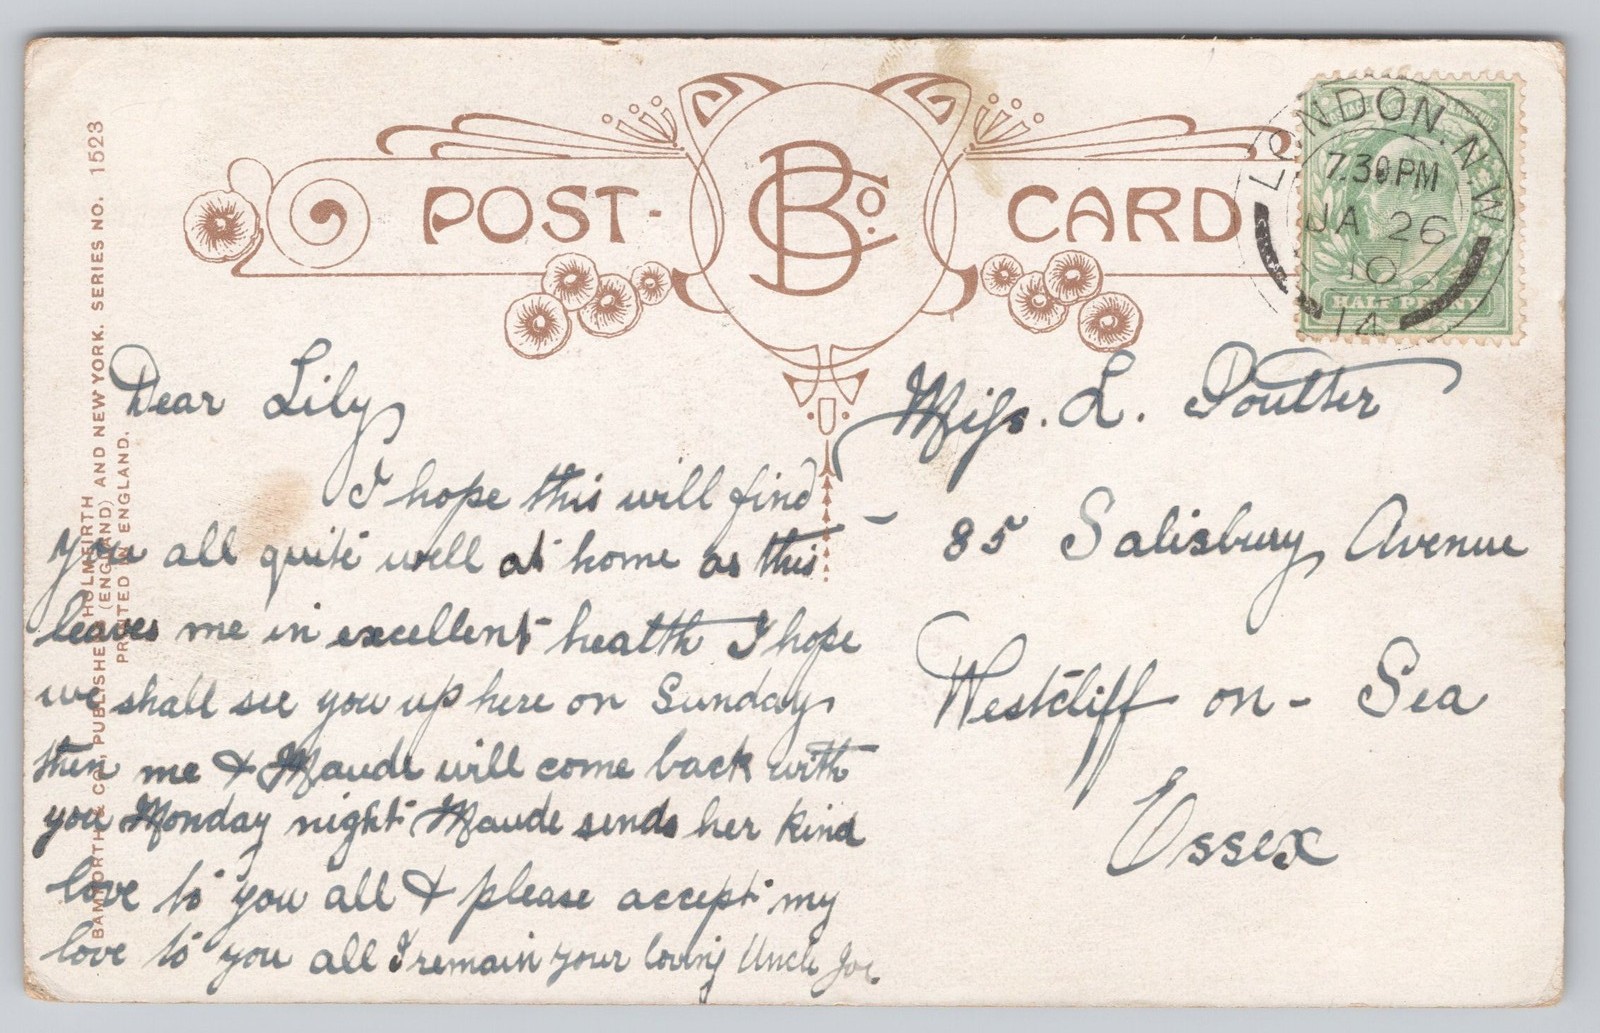 POST- BCo. CARD
LONDON. N.W
7.30PM
JA 26
10
14
HALF PENNY
BAMFORTH & CO., PUBLISHERS, HOLMFIRTH
(ENGLAND) AND NEW YORK. SERIES NO. 1523
PRINTED IN ENGLAND.
Dear Lily
I hope this will find
you all quite well at home as this
leaves me in excellent health I hope
we shall see you up here on Sunday
then me & Maude will come back with
you Monday night Maude sends her kind
love to you all & please accept my
love to you all I remain your loving Uncle Joe.
Miss. L. Poulter
85 Salisbury Avenue
Westcliff on - Sea
Essex